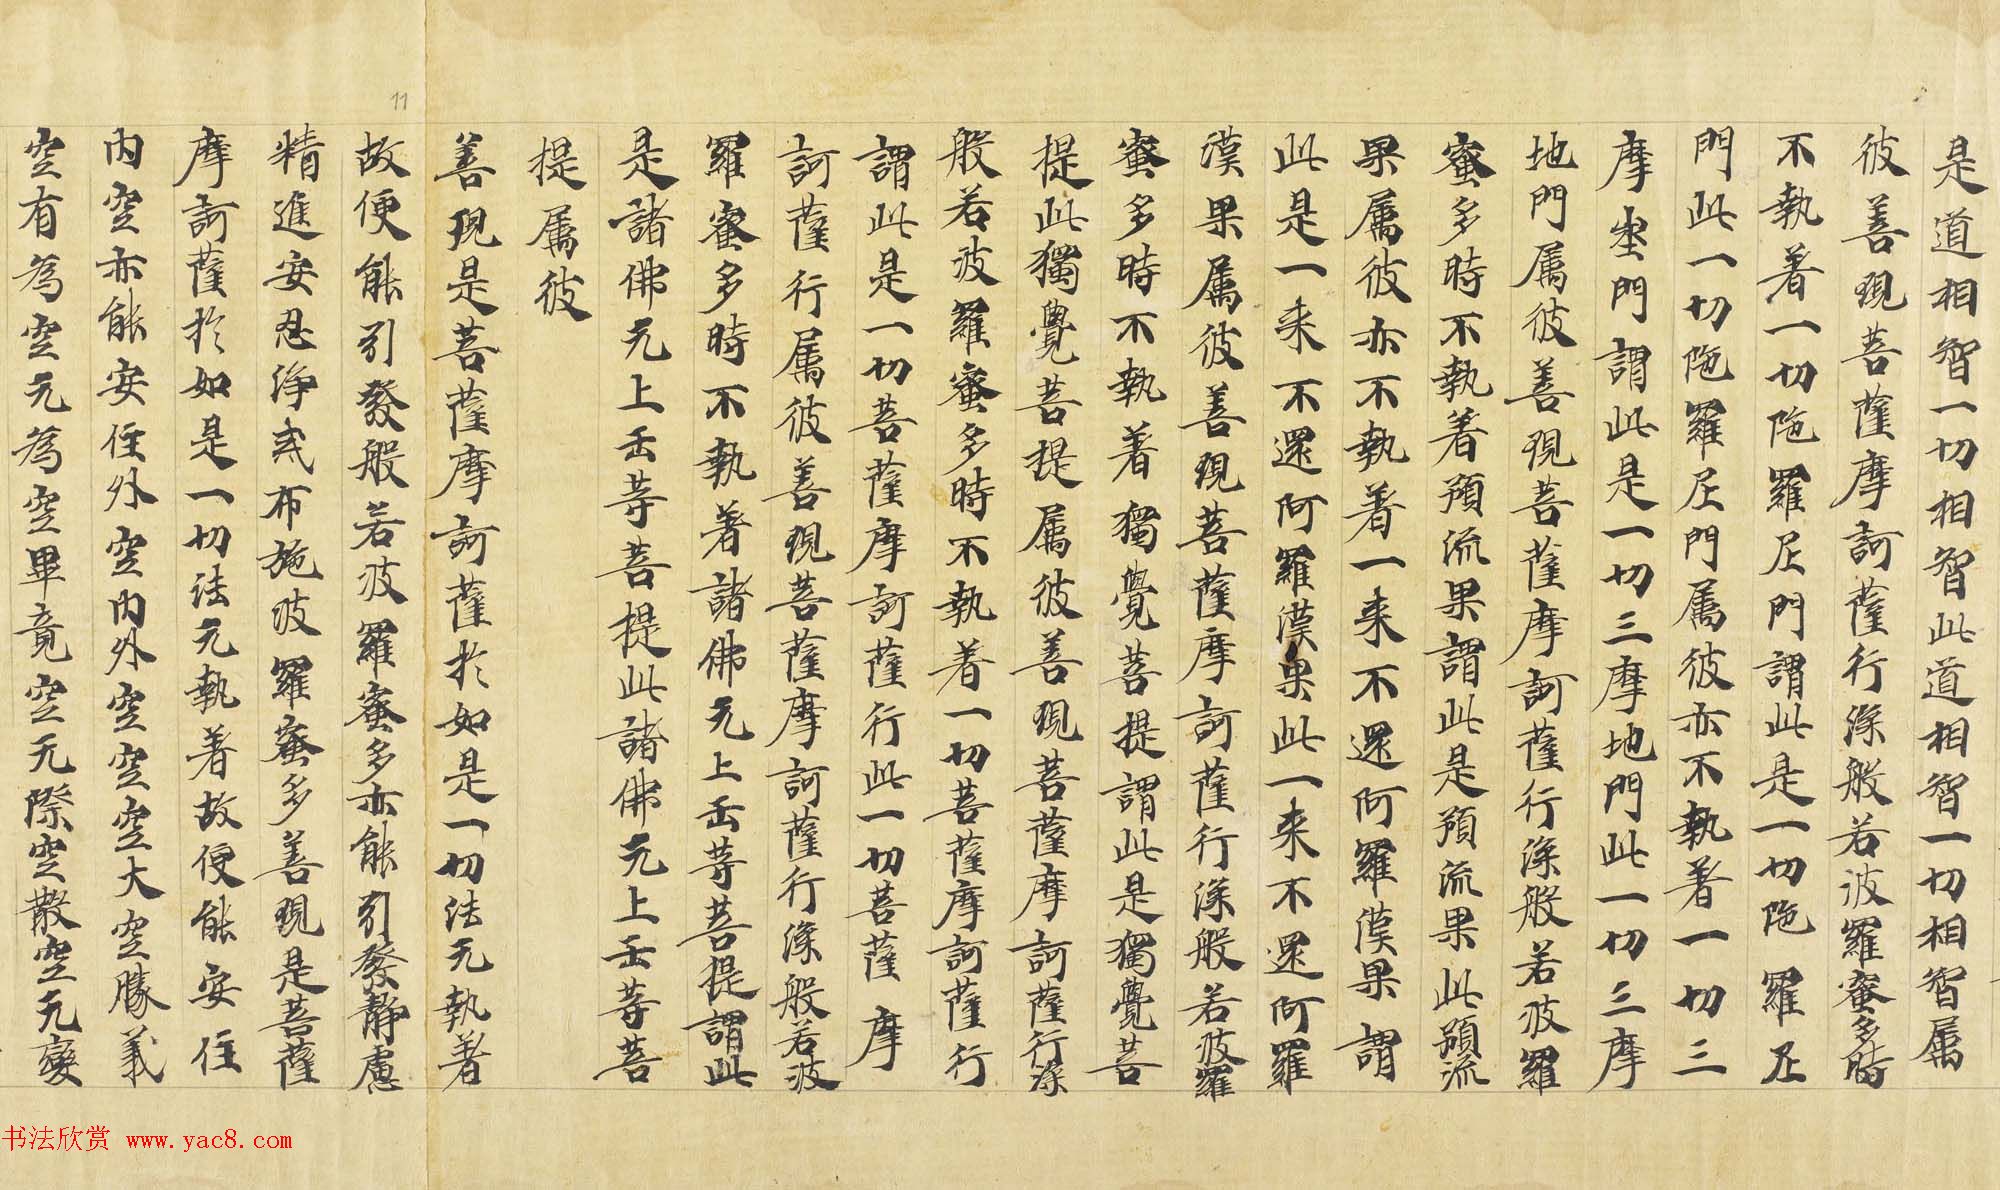 是道相智一切相智此道相智一切相智属
彼善現菩薩摩訶薩行深般若波羅蜜多時
不執著一切陁羅尼門謂此是一切陁羅尼
門此一切陁羅尼門属彼亦不執著一切三
摩地門謂此是一切三摩地門此一切三摩
地門属彼善現菩薩摩訶薩行深般若波羅
蜜多時不執著預流果謂此是預流果此預流
果属彼亦不執著一来不還阿羅漢果謂
此是一来不還阿羅漢果此一来不還阿羅
漢果属彼善現菩薩摩訶薩行深般若波羅
蜜多時不執著獨覺菩提謂此是獨覺菩
提此獨覺菩提属彼善現菩薩摩訶薩行深
般若波羅蜜多時不執著一切菩薩摩訶薩行
謂此是一切菩薩摩訶薩行此一切菩薩摩
訶薩行属彼善現菩薩摩訶薩行深般若波
羅蜜多時不執著諸佛无上正等菩提謂此
是諸佛无上正等菩提此諸佛无上正等菩
提属彼
善現是菩薩摩訶薩於如是一切法无執著
故便能引發般若波羅蜜多亦能引發静慮
精進安忍净戒布施波羅蜜多善現是菩薩
摩訶薩於如是一切法无執著故便能安住
内空亦能安住外空内外空空空大空勝義
空有為空无為空畢竟空无際空散空无變
11
书法欣赏 www.yac8.com